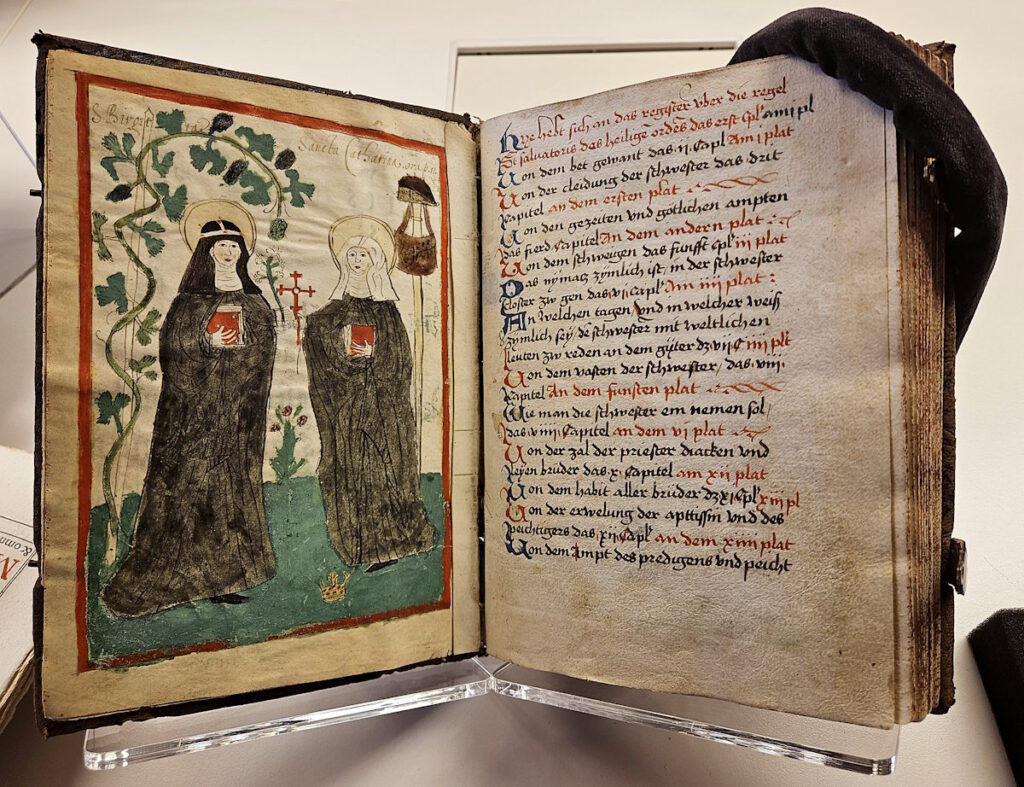 S. Birgit
Sancta Catharina
Hye hebt sich an das register vber die regel
Sti saluatoris das heilige ordens das erst Cpl am i pl
Von dem bet gewant das .ij. Capl Am i plat
Von der cleidung der schwester das drit
Kapitel an dem ersten plat
Von den gezeiten vnd götlichen ampten
das fierd Capitel An dem andern plat
Von dem schweygen das funfft Cpl iij plat
Das nymatz zymlich ist in der schwester
kloster zw gen das vi Capl Am iiij plat
An welchen tagen vnd in welcher weiß
zymlich sey de schwester mit weltlichen
leuten zw reden an dem gyter dz vij C iiij plt
Von dem vasten der schwester / das viij
Kapitel An dem funften plat
Wie man die schwester ein nemen sol /
das viiij Capitel an dem vi plat
Von der zal der priester diacken vnd
leyen bruder das x Capitel am xij plat
Von dem habit aller bruder dz xi Cpl xiij pl
Von der erwelung der apttissin vnd des
peichtigers das xij Capl an dem xiiij plat
Von dem Ampt des predigens vnd peicht